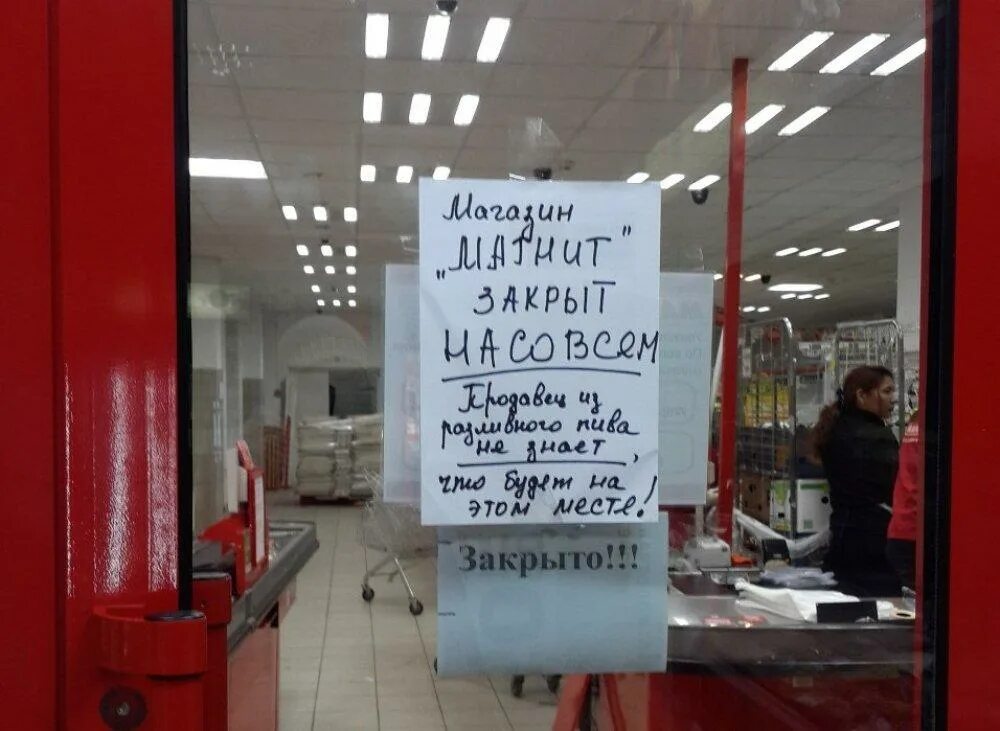 Магазин
„МАГНИТ"
ЗАКРЫТ
НАСОВСЕМ
Продавец из
разливного пива
не знает,
что будет на
этом месте!
Закрыто!!!